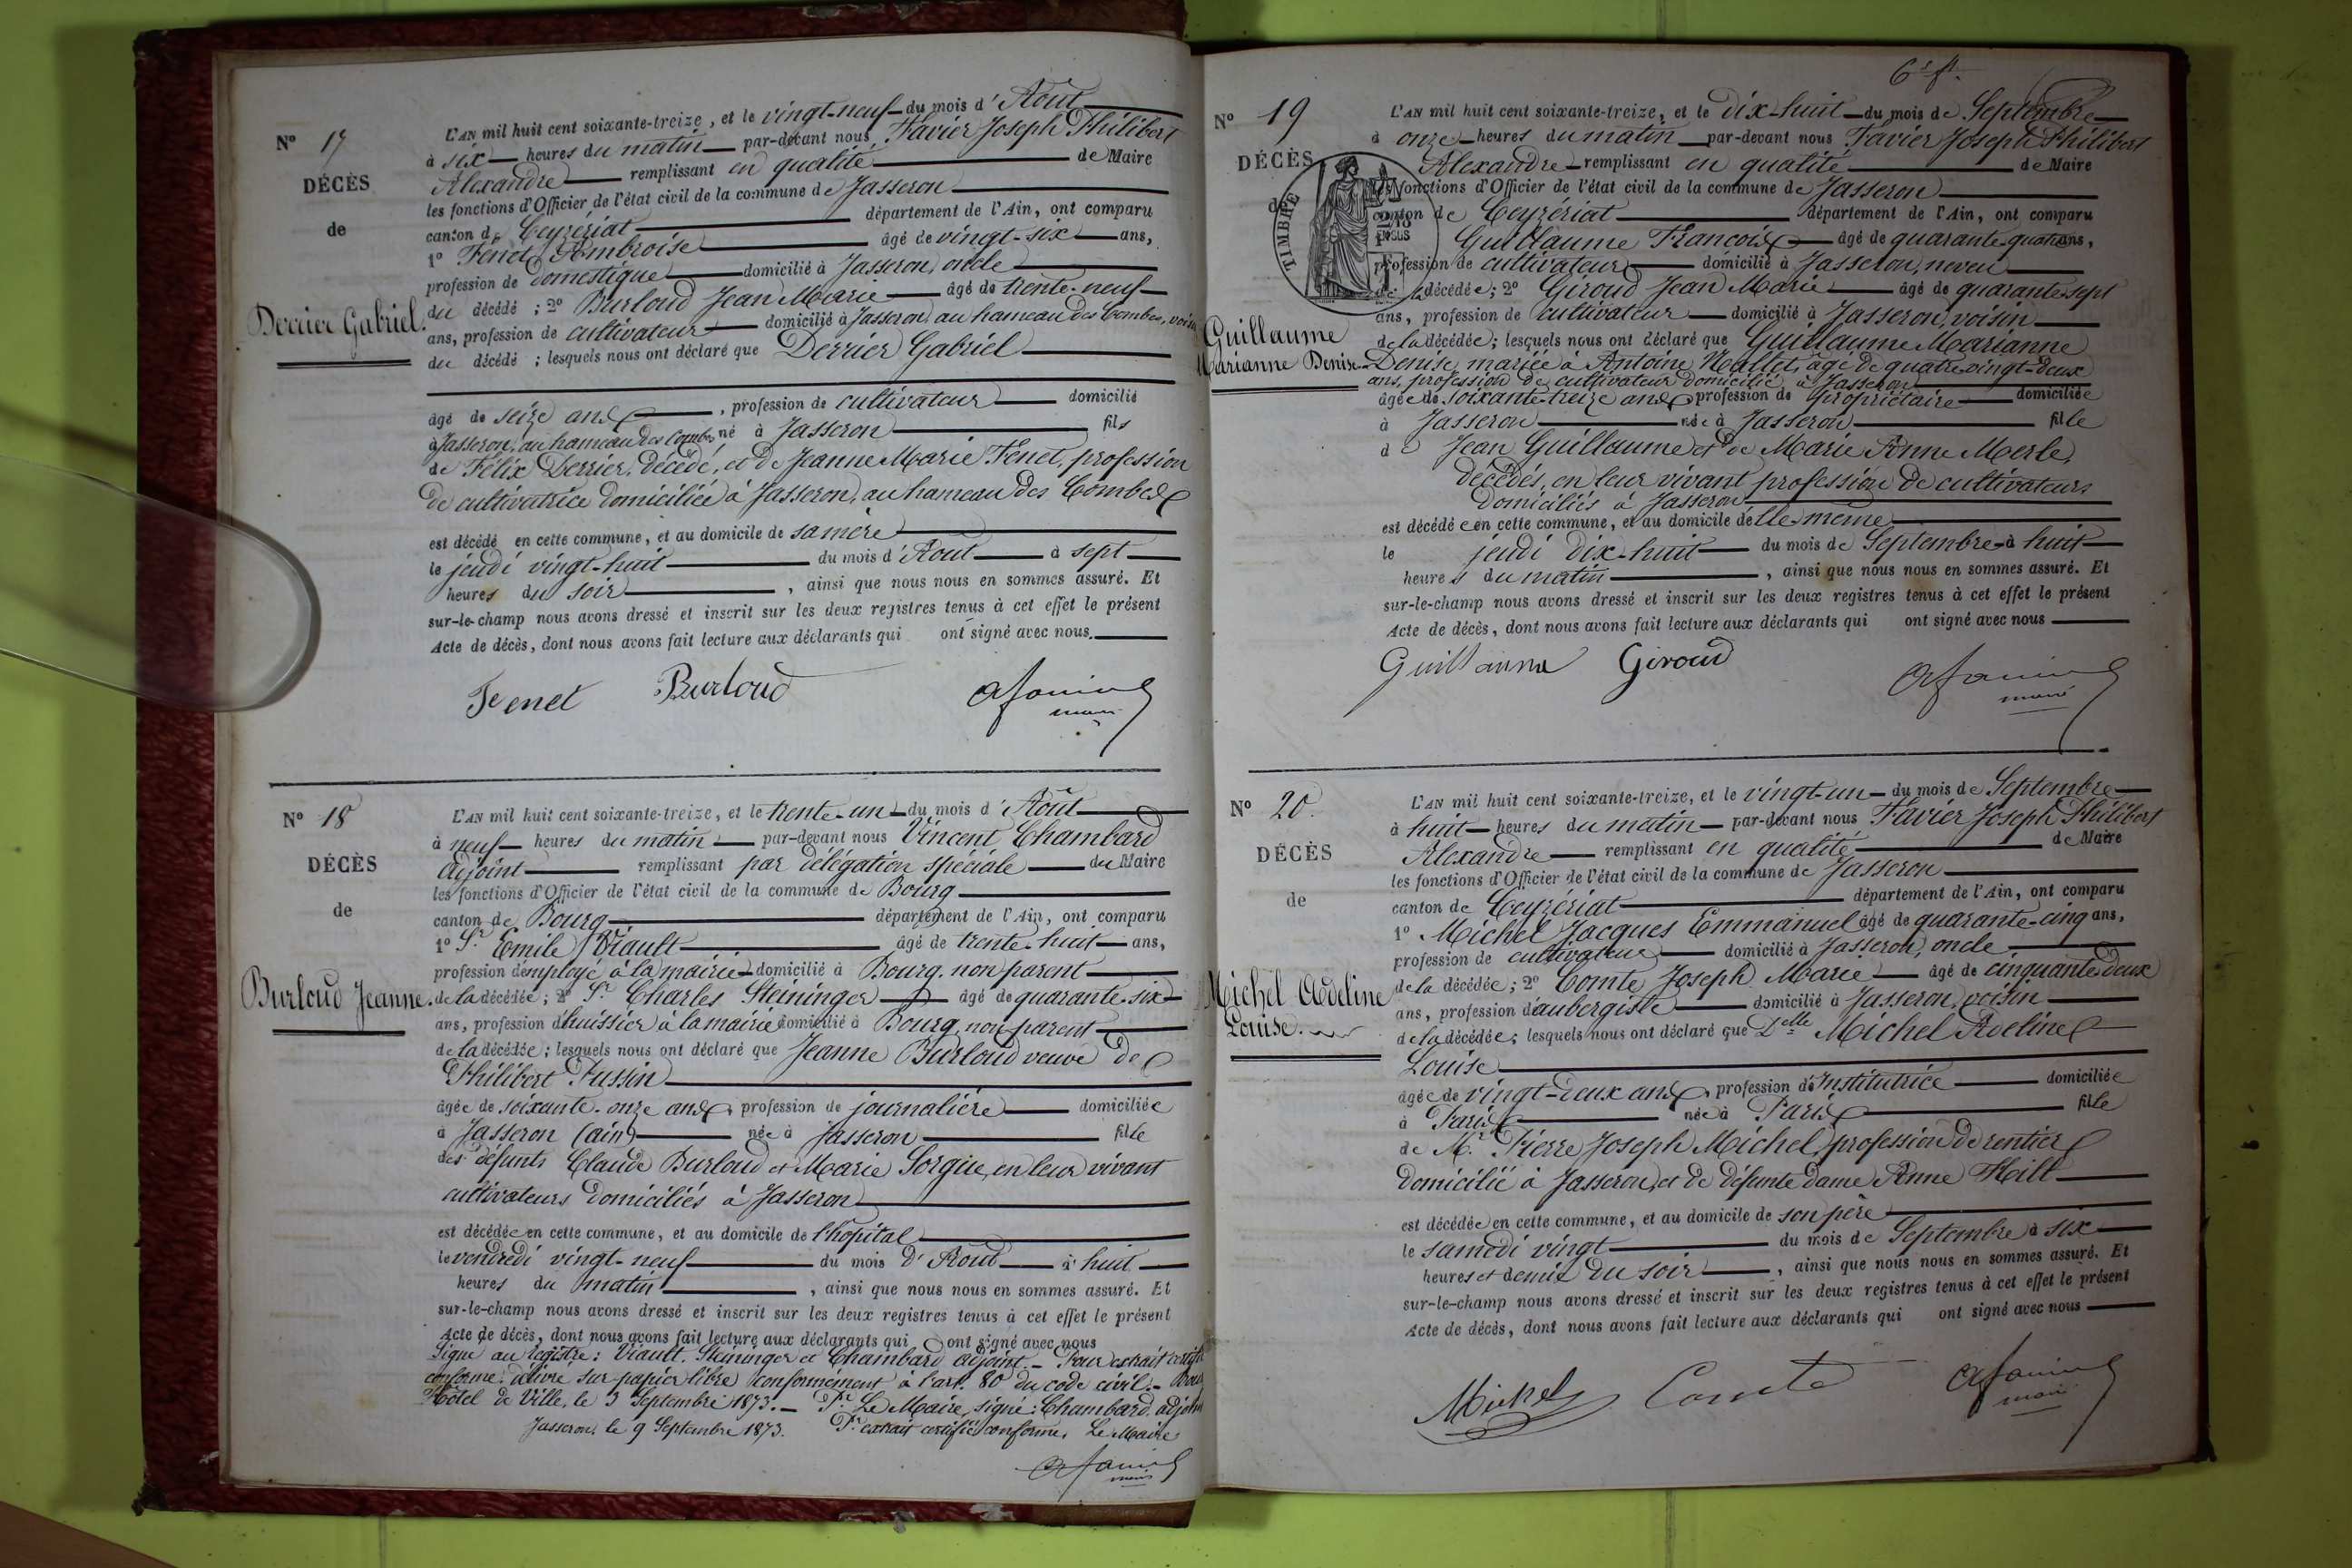 Nº 17
DÉCÈS
de
Derrier Gabriel.
L'AN mil huit cent soixante-treize, et le vingt-neuf du mois d'Août
à six heures du matin par-devant nous Favier Joseph Philibert
Alexandre remplissant en qualité de Maire
les fonctions d'Officier de l'état civil de la commune de Jasseron
canton de Ceyzériat département de l'Ain, ont comparu
1º Fenet Ambroise âgé de vingt-six ans,
profession de domestique domicilié à Jasseron, oncle
du décédé ; 2º Burloud Jean Marie âgé de trente-neuf
ans, profession de cultivateur domicilié à Jasseron, au hameau des Combes, voisin
du décédé ; lesquels nous ont déclaré que Derrier Gabriel
âgé de seize ans, profession de cultivateur domicilié
à Jasseron, au hameau des Combes né à Jasseron fils
de Félix Derrier, décédé, et de Jeanne Marie Fenet, profession
de cultivatrice domiciliée à Jasseron, au hameau des Combes
est décédé en cette commune, et au domicile de sa mère
le jeudi vingt-huit du mois d'Août à sept
heures du soir, ainsi que nous nous en sommes assuré. Et
sur-le-champ nous avons dressé et inscrit sur les deux registres tenus à cet effet le présent
Acte de décès, dont nous avons fait lecture aux déclarants qui ont signé avec nous.
Fenet Burloud
Nº 18
DÉCÈS
de
Burloud Jeanne.
L'AN mil huit cent soixante-treize, et le trente-un du mois d'Août
à neuf heures du matin par-devant nous Vincent Chambard
adjoint remplissant par délégation spéciale du Maire
les fonctions d'Officier de l'état civil de la commune de Bourg
canton de Bourg département de l'Ain, ont comparu
1º Sr Emile Viault âgé de trente-huit ans,
profession d'employé à la mairie domicilié à Bourg, non parent
de la décédée ; 2º Sr Charles Steininger âgé de quarante-six
ans, profession d'huissier à la mairie domicilié à Bourg, non parent
de la décédée ; lesquels nous ont déclaré que Jeanne Burloud veuve de
Philibert Fussin
âgée de soixante-onze ans, profession de journalière domiciliée
à Jasseron (ain) née à Jasseron fille
des défunts Claude Burloud et Marie Sorgue, en leur vivant
cultivateurs domiciliés à Jasseron
est décédée en cette commune, et au domicile de l'hôpital
le vendredi vingt-neuf du mois d'Août à huit
heures du matin, ainsi que nous nous en sommes assuré. Et
sur-le-champ nous avons dressé et inscrit sur les deux registres tenus à cet effet le présent
Acte de décès, dont nous avons fait lecture aux déclarants qui ont signé avec nous
Signé au registre : Viault, Steininger et Chambard adjoint. - Pour extrait certifié
conforme délivré sur papier libre conformément à l'art. 80 du code civil. - Bourg
Hôtel de Ville, le 3 Septembre 1873. - Pr Le Maire, signé : Chambard, adjoint
Jasseron, le 9 Septembre 1873. Pr extrait certifié conforme, Le Maire
6e ft.
Nº 19
DÉCÈS
de
TIMBRE
Guillaume
Marianne Denise
L'AN mil huit cent soixante-treize, et le dix-huit du mois de Septembre
à onze heures du matin par-devant nous Favier Joseph Philibert
Alexandre remplissant en qualité de Maire
les fonctions d'Officier de l'état civil de la commune de Jasseron
canton de Ceyzériat département de l'Ain, ont comparu
1º Guillaume François âgé de quarante-quatre ans,
profession de cultivateur domicilié à Jasseron, neveu
de la décédée ; 2º Giroud Jean Marie âgé de quarante-sept
ans, profession de cultivateur domicilié à Jasseron, voisin
de la décédée ; lesquels nous ont déclaré que Guillaume Marianne
Denise, mariée à Antoine Maillet, âgé de quatre-vingt-deux
ans, profession de cultivateur domicilié à Jasseron
âgée de soixante-treize ans, profession de propriétaire domiciliée
à Jasseron née à Jasseron fille
de Jean Guillaume et de Marie Anne Merle,
décédés, en leur vivant profession de cultivateurs
domiciliés à Jasseron
est décédée en cette commune, et au domicile d'elle-même
le jeudi dix-huit du mois de Septembre à huit
heures du matin, ainsi que nous nous en sommes assuré. Et
sur-le-champ nous avons dressé et inscrit sur les deux registres tenus à cet effet le présent
Acte de décès, dont nous avons fait lecture aux déclarants qui ont signé avec nous
Guillaume Giroud
maire
Nº 20.
DÉCÈS
de
Michel Adeline
Louise.
L'AN mil huit cent soixante-treize, et le vingt-un du mois de Septembre
à huit heures du matin par-devant nous Favier Joseph Philibert
Alexandre remplissant en qualité de Maire
les fonctions d'Officier de l'état civil de la commune de Jasseron
canton de Ceyzériat département de l'Ain, ont comparu
1º Michel Jacques Emmanuel âgé de quarante-cinq ans,
profession de cultivateur domicilié à Jasseron, oncle
de la décédée ; 2º Comte Joseph Marie âgé de cinquante-deux
ans, profession d'aubergiste domicilié à Jasseron, voisin
de la décédée ; lesquels nous ont déclaré que Delle Michel Adeline
Louise
âgée de vingt-deux ans, profession d'Institutrice domiciliée
à Paris née à Paris fille
de Mr Pierre Joseph Michel, profession de rentier
domicilié à Jasseron, et de défunte dame Anne Hill
est décédée en cette commune, et au domicile de son père
le samedi vingt du mois de Septembre à six
heures et demie du soir, ainsi que nous nous en sommes assuré. Et
sur-le-champ nous avons dressé et inscrit sur les deux registres tenus à cet effet le présent
Acte de décès, dont nous avons fait lecture aux déclarants qui ont signé avec nous
Michel Comte
maire